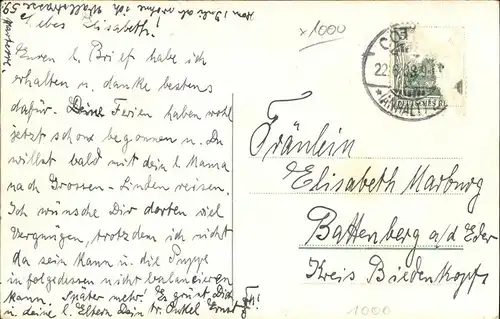 vom 1 Juli ab wohne ich Wallstrasse 59
parterre.
Liebes Elisabeth!
Euren l. Brief habe ich
erhalten u. danke bestens
dafür. Deine Ferien haben wohl
jetzt schon begonnen u. Du
willst bald mit dein l. Mama
nach Grossen-Linden reisen.
Ich wünsche Dir dorten viel
Vergnügen, trotzdem ich nicht
da sein kann u. die Puppe
infolgedessen nicht balancieren
kann. Später mehr! Es grüßt Dich
u deine l. Eltern Dein tr. Onkel Ernst
x1000
22.6
(ANHALT)
Fräulein
Elisabeth Marburg
Battenberg a/d Eder
Kreis Biedenkopf.
1000